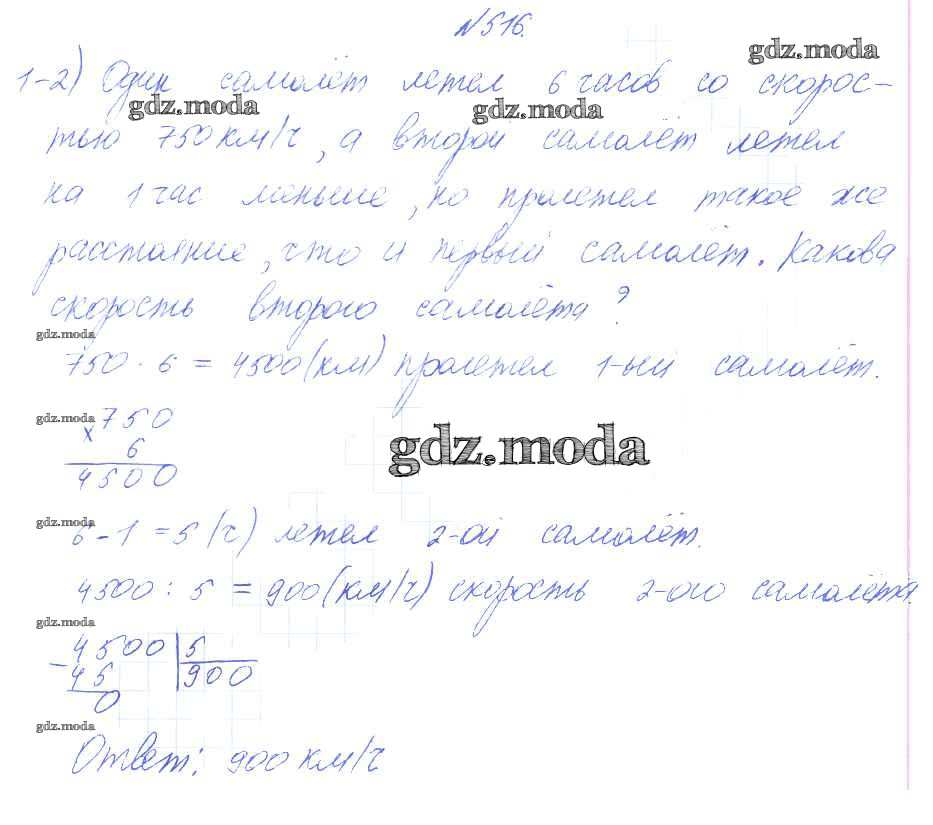 №516.
gdz.moda
1-2) Один самолёт летел 6 часов со скорос-
gdz.moda gdz.moda
тью 750 км/ч, а второй самолёт летел
на 1 час меньше, но пролетел такое же
расстояние, что и первый самолёт. Какова
скорость второго самолёта?
gdz.moda
750 · 6 = 4500 (км) пролетел 1-ый самолёт.
gdz.moda
× 750
6
4500
gdz.moda
gdz.moda
6 - 1 = 5 (ч) летел 2-ой самолёт.
4500 : 5 = 900 (км/ч) скорость 2-ого самолёта.
gdz.moda
- 4500 | 5
45 | 900
0
gdz.moda
Ответ: 900 км/ч